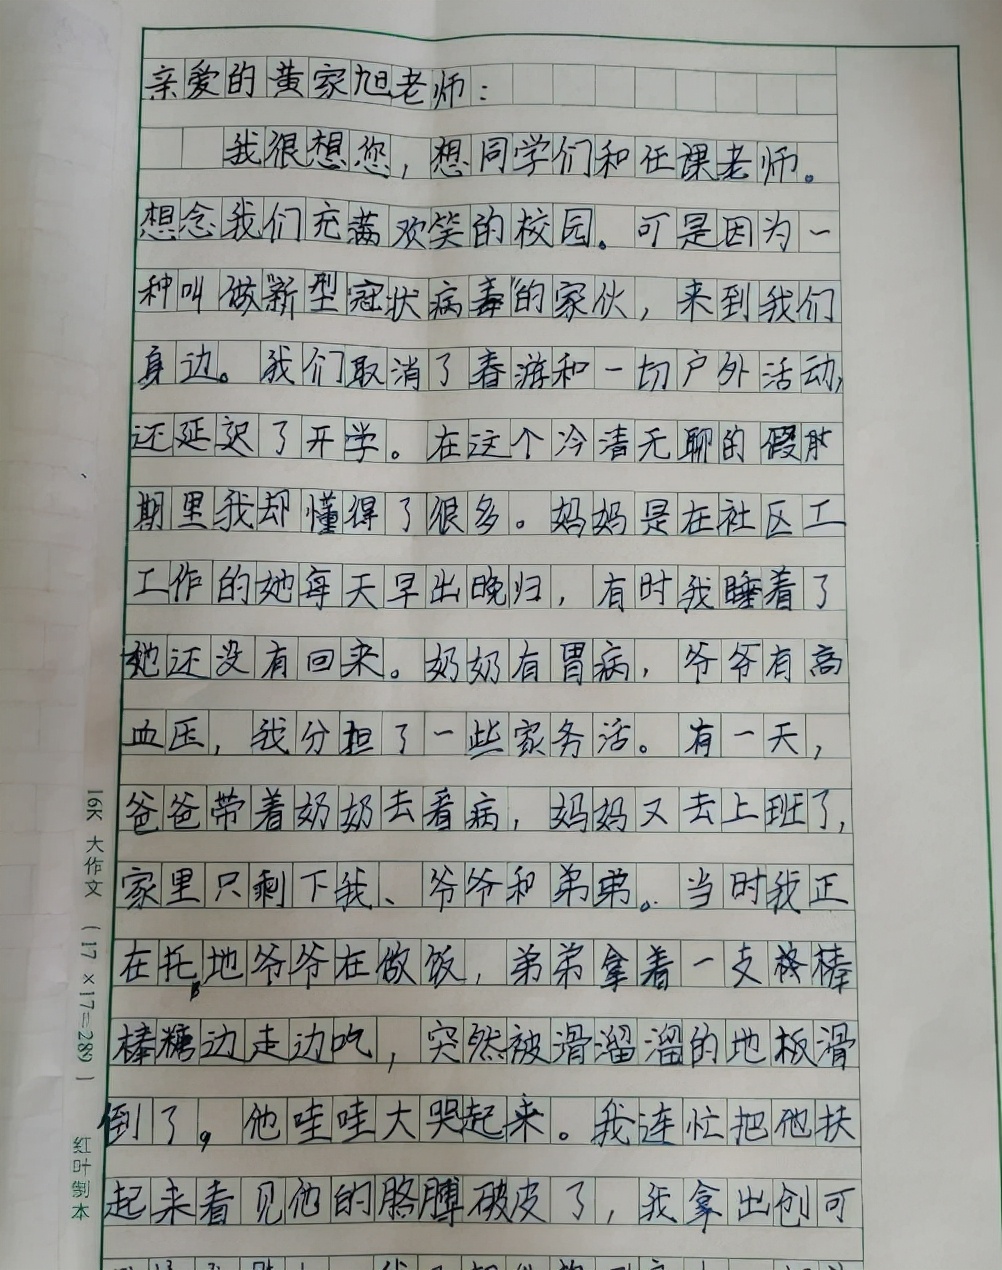 亲爱的黄家旭老师：
我很想您，想同学们和任课老师。
想念我们充满欢笑的校园。可是因为一
种叫做“新型冠状病毒”的家伙，来到我们
身边。我们取消了春游和一切户外活动，
还延迟了开学。在这个冷清无聊的假
期里我却懂得了很多。妈妈是在社区工
工作的她每天早出晚归，有时我睡着了
她还没有回来。奶奶有胃病，爷爷有高
血压，我分担了一些家务活。有一天，
爸爸带着奶奶去看病，妈妈又去上班了，
家里只剩下我、爷爷和弟弟。当时我正
在托地爷爷在做饭，弟弟拿着一支棒
棒糖边走边吃，突然被滑溜溜的地板滑
倒了。他哇哇大哭起来。我连忙把他扶
起来看见他的胳膊破皮了，我拿出创可
16K 大作文 (17×17=289)
红叶制本